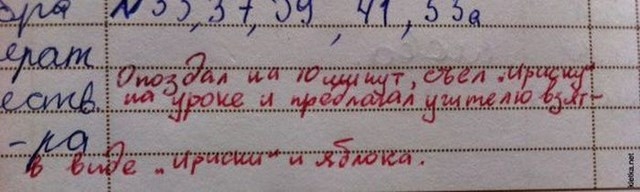 ора №35, 37, 39, 41, 53а
ерат
Опоздал на 10 минут, съел "Ириску"
еств. на уроке и предлагал учителю взят-
-ра
в виде "Ириски" и яблока.